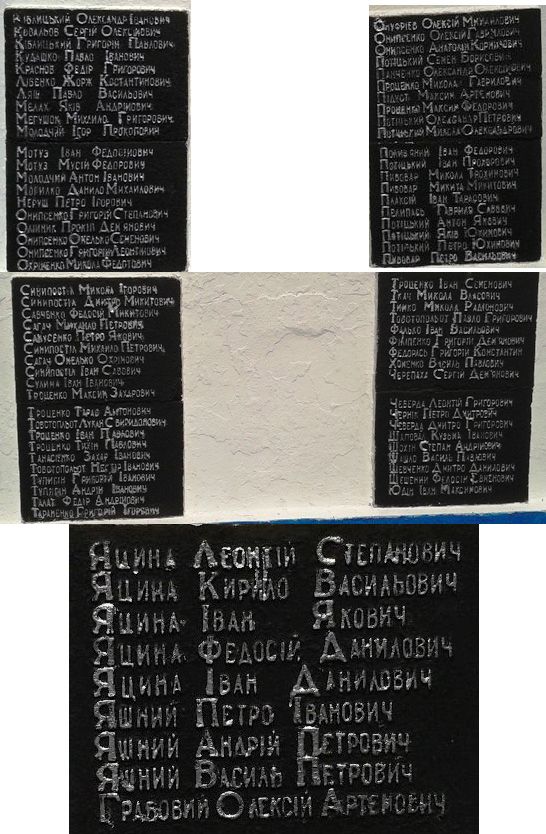 Кіблицький Олександр Іванович
Ковальов Сергій Олексійович
Кіблицький Григорій Павлович
Кудашко Павло Іванович
Краснов Федір Григорович
Лівенко Жорж Костантинович
Ляш Павло Васильович
Мелах Яків Андрійович
Мегушок Михайло Григорович
Молодчий Ігор Прокопович
Мотуз Іван Федосійович
Мотуз Мусій Федорович
Молодчий Антон Іванович
Могилко Данило Михайлович
Неруш Петро Ігорович
Онипсенко Григорій Степанович
Олійник Прокіп Дем'янович
Онипсенко Омелько Семенович
Онипсенко Григорій Леонтійович
Охріменко Микола Федотович
Онуфрієв Олексій Михайлович
Онипсенко Олексій Гаврилович
Онипсенко Анатолій Корнійович
Потіцький Семен Борисович
Панченко Олександр Олексійович
Проценко Микола Гаврилович
Підуст Максим Артемович
Проценко Максим Федорович
Потіцький Олександр Петрович
Потіцький Микола Олександрович
Поливяний Іван Федорович
Потіцький Іван Прохорович
Пивовар Микола Трохимович
Пивовар Микита Микитович
Палахсій Іван Тарасович
Пелипась Гаврила Савович
Потіцький Антон Якович
Потіцький Яків Юхимович
Потіцький Петро Юхимович
Пивовар Петро Васильович
Синипостіл Микола Ігорович
Синипостіл Дмитро Микитович
Савченко Федосій Микитович
Сагач Михайло Петрович
Савусенко Петро Якович
Синипостіл Михайло Петрович
Сагач Омелько Охрімович
Синипостіл Іван Савович
Сулима Іван Іванович
Троценко Максим Захарович
Троценко Тарас Антонович
Товотопольот Лукан Свиридонович
Троценко Іван Павлович
Троценко Трохим Павлович
Танасієнко Захар Іванович
Товотопольот Нестір Іванович
Туписін Григорій Іванович
Туписін Андрій Іванович
Талах Федір Андрійович
Тараненко Григорій Ігорович
Троценко Іван Семенович
Ткач Микола Власович
Тимко Микола Радіонович
Товотопольот Павло Григорович
Фалько Іван Васильович
Філіпенко Григорій Дем'янович
Федорась Григорій Константин
Хоменко Василь Павлович
Черепаха Сергій Дем'янович
Чеверда Леонтій Григорович
Чернік Петро Дмитрович
Чеверда Дмитро Григорович
Шаповал Кузьма Іванович
Шохін Степан Андрійович
Шило Василь Павлович
Шевченко Дмитро Данилович
Шешений Федосій Євгенович
Юдін Іван Максимович
Яцина Леонтій Степанович
Яцина Кирило Васильович
Яцина Іван Якович
Яцина Федосій Данилович
Яцина Іван Данилович
Яшний Петро Іванович
Яшний Андрій Петрович
Яшний Василь Петрович
Грабовий Олексій Артемович